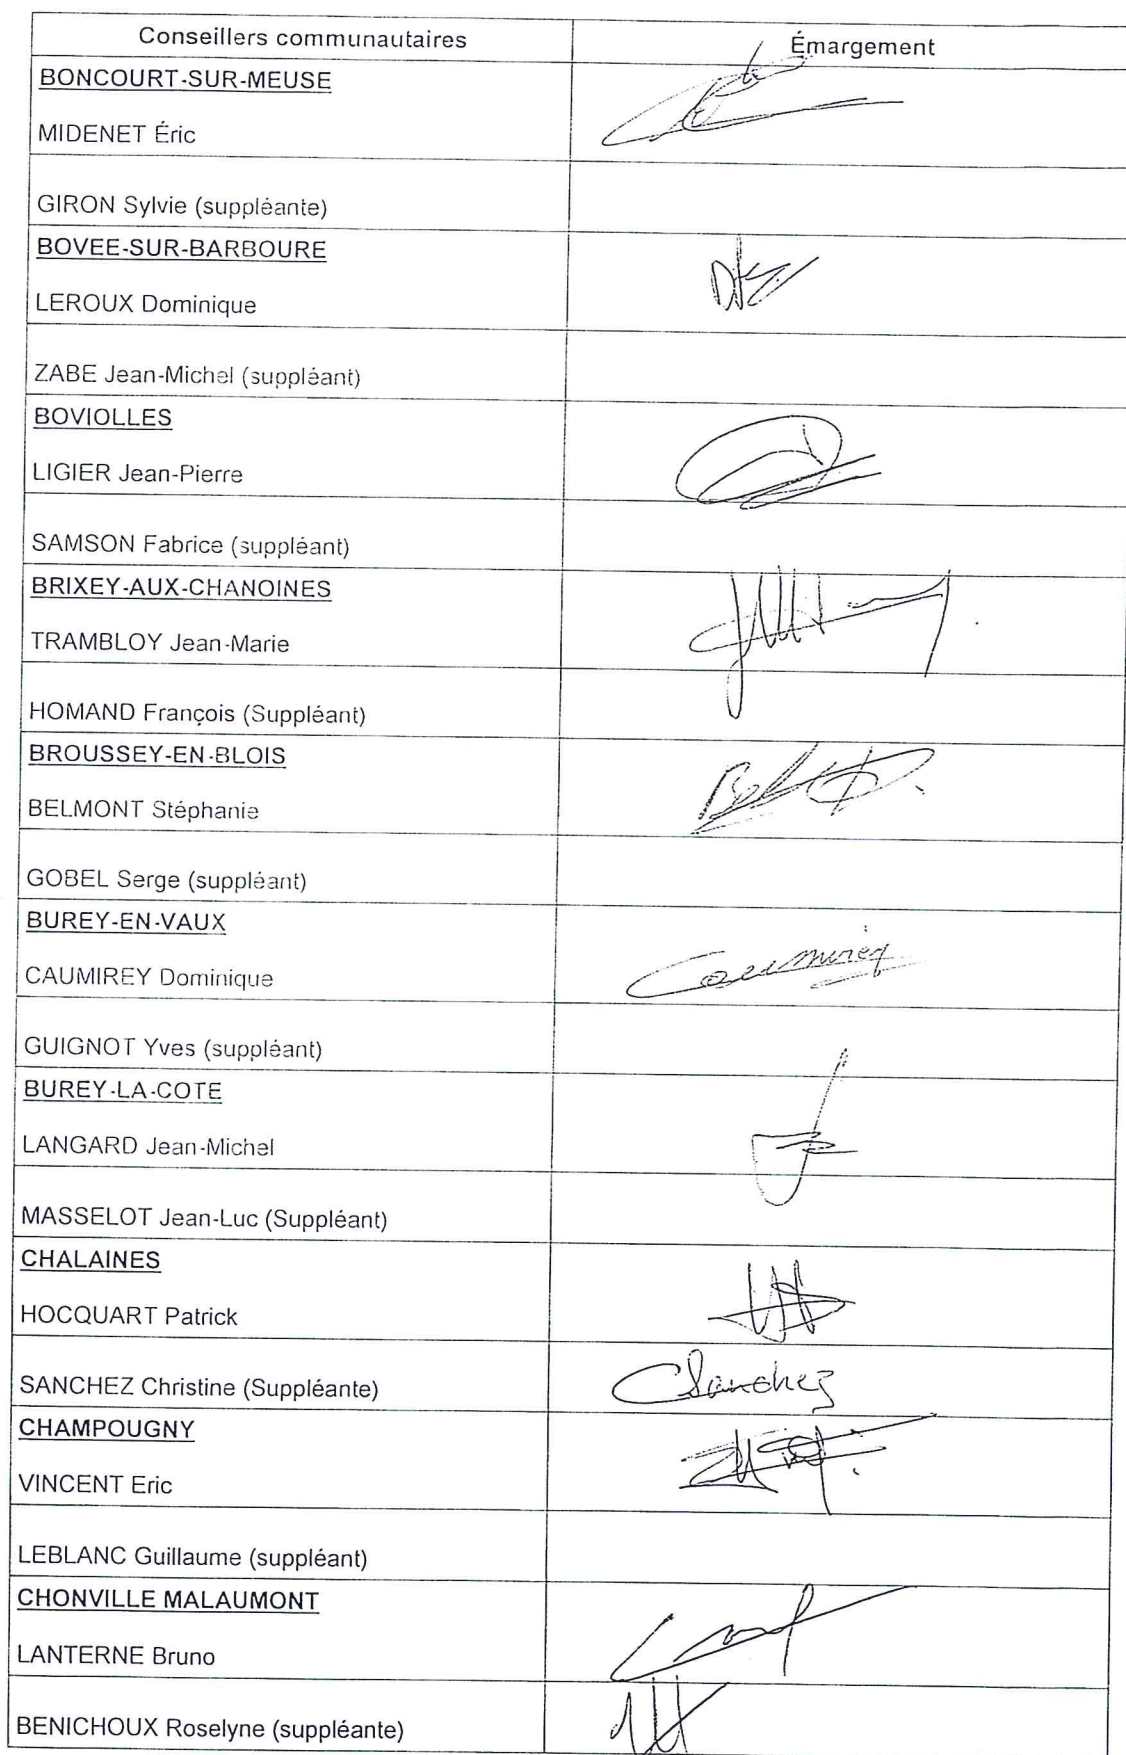 Conseillers communautaires
Émargement
BONCOURT-SUR-MEUSE
MIDENET Éric
GIRON Sylvie (suppléante)
BOVEE-SUR-BARBOURE
LEROUX Dominique
ZABE Jean-Michel (suppléant)
BOVIOLLES
LIGIER Jean-Pierre
SAMSON Fabrice (suppléant)
BRIXEY-AUX-CHANOINES
TRAMBLOY Jean-Marie
HOMAND François (Suppléant)
BROUSSEY-EN-BLOIS
BELMONT Stéphanie
GOBEL Serge (suppléant)
BUREY-EN-VAUX
CAUMIREY Dominique
Caumirey
GUIGNOT Yves (suppléant)
BUREY-LA-COTE
LANGARD Jean-Michel
MASSELOT Jean-Luc (Suppléant)
CHALAINES
HOCQUART Patrick
SANCHEZ Christine (Suppléante)
CSanchez
CHAMPOUGNY
VINCENT Eric
LEBLANC Guillaume (suppléant)
CHONVILLE MALAUMONT
LANTERNE Bruno
BENICHOUX Roselyne (suppléante)